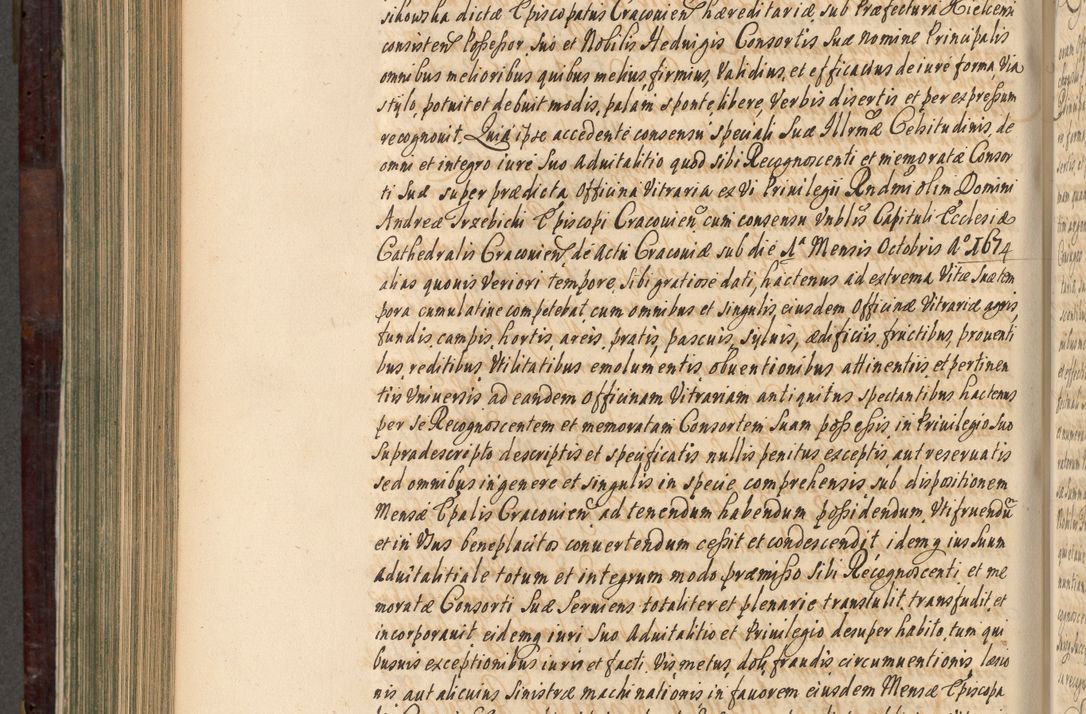 sikowska dictæ Episcopatus Cracouien hæreditariæ sub Præfectura Kielcensi
consisten Possessor, suo et Nobilis Heduigis Consortis suæ nomine Principalis
omnibus melioribus quibus melius firmius, validius, et efficacius de iure forma, via
stylo, potuit et debuit modis, palam sponte libere, verbis disertis et per expressum
recognouit. Quia ipse accedente consensu speciali Suæ Illrmæ Celsitudinis, de
omni et integro iure suo aduitalitio quod sibi Recognoscenti et memoratæ Consor
ti suæ super prædicta officina Vitraria ex vi Priuilegii Rndmi olim Domini
Andreæ Trzebicki Episcopi Cracouien, cum consensu Vnblis Capituli Ecclesiæ
Cathedralis Cracouien, de Actu Cracouiæ sub die 1a Mensis Octobris Ao 1674
alias quouis veriori tempore, sibi gratiose dati, hactenus ad extrema vitæ suæ tem
pora cumulatiue competebat, cum omnibus et singulis, eiusdem officinæ Vitrariæ agris,
fundis, campis, hortis, areis, pratis, pascuis, syluis, ædificiis, fructibus, prouenti
bus, reditibus, vtilitatibus, emolumentis, obuentionibus, attinentiis, et pertinen
tiis vniuersis ad eandem officinam Vitrariam antiquitus spectantibus hactenus
per se Recognoscentem et memoratam Consortem suam possessis, in Priuilegio suo
supradescripto descriptis et specificatis nullis penitus exceptis, aut reseruatis
sed omnibus in genere et singulis in specie comprehensis, sub dispositionem
Mensæ Epalis Cracouien ad tenendum habendum possidendum, vtifruendũ
et in vsus beneplacitos conuertendum cessit et condescendit, idemq ius suum
aduitalitiale totum et integrum modo præmisso sibi Recognoscenti et me
moratæ Consorti suæ seruiens totaliter et plenarie transtulit, transfudit, et
incorporauit eidemq iuri suo aduitalitio et Priuilegio desuper habito, tum qui
busuis exceptionibus iuris et facti, vis, metus, doli, fraudis, circumuentionis, læsio
nis aut alicuius sinistræ machinationis in fauorem eiusdem Mensæ Episcopa